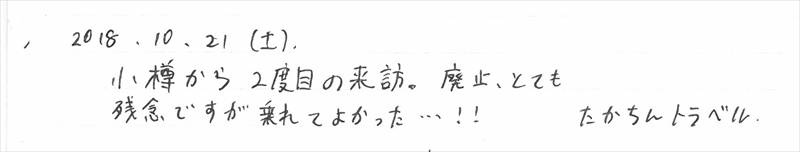 2018.10.21(土).
小樽から2度目の来訪。廃止、とても
残念ですが乗れてよかった…!! たかちんトラベル.